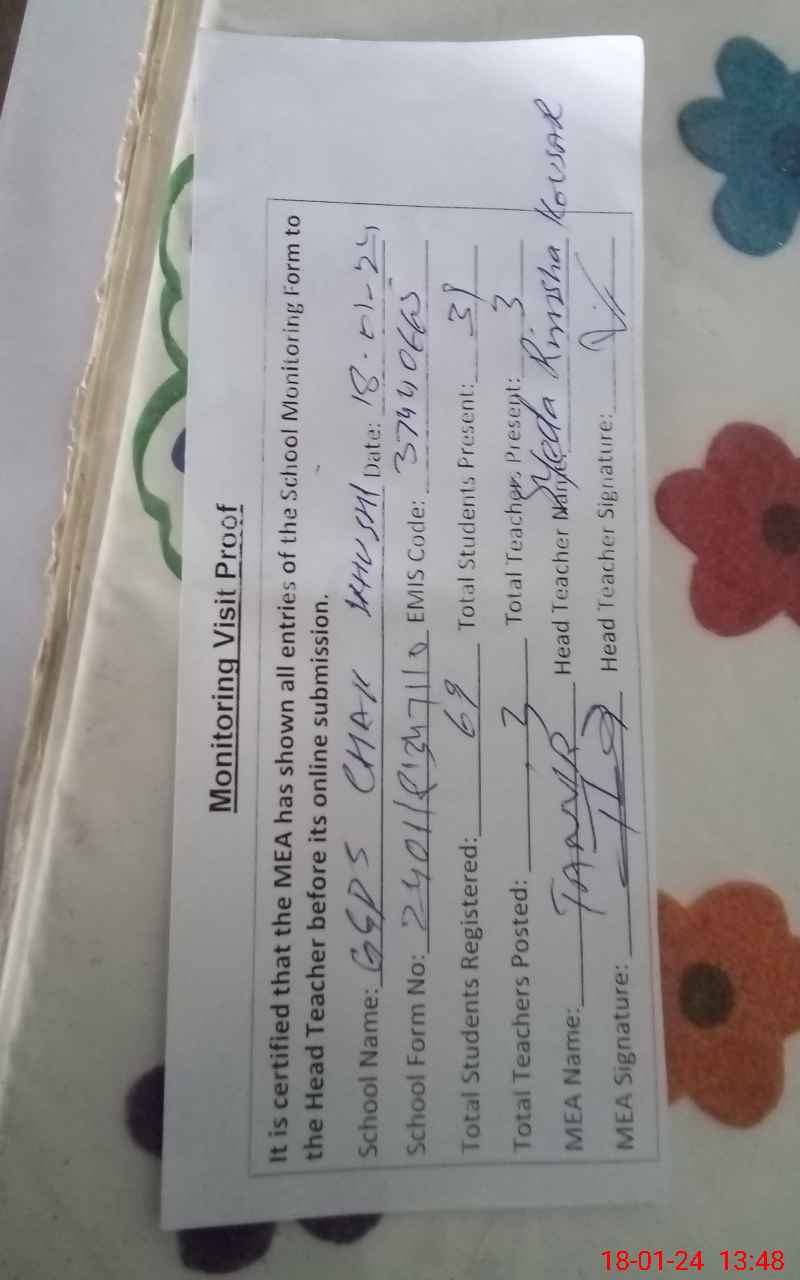 Monitoring Visit Proof
It is certified that the MEA has shown all entries of the School Monitoring Form to
the Head Teacher before its online submission.
School Name: GGPS CHAK KHUSHI Date: 18-01-24
School Form No: EMIS Code: 37440665
Total Students Registered: 69 Total Students Present: 39
Total Teachers Posted: 3 Total Teachers Present: 3
MEA Name: TANVIR Head Teacher Name: Syeda Rimsha Kousar
MEA Signature: Head Teacher Signature:
18-01-24 13:48